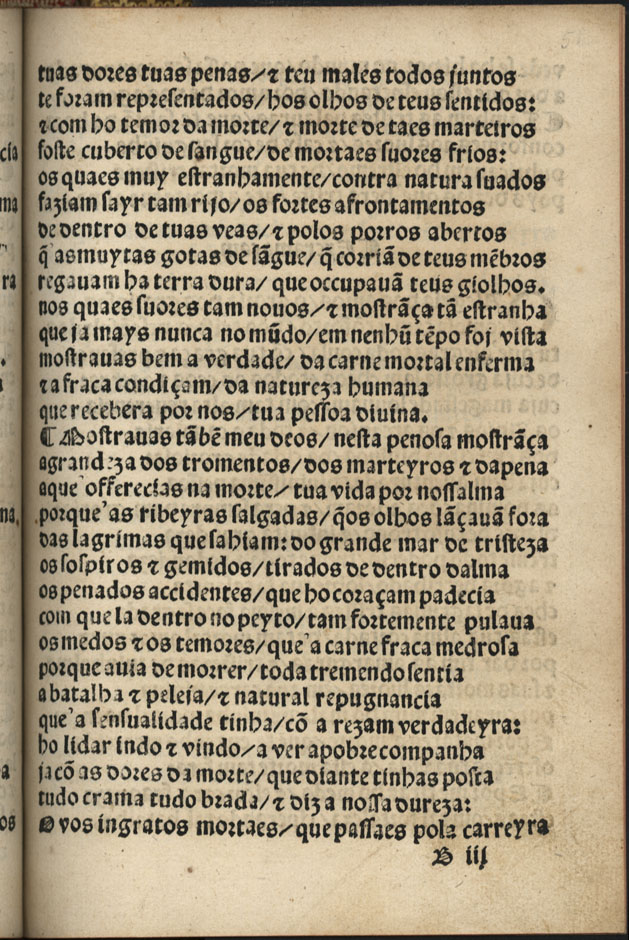 tuas dores tuas penas/⁊ teu males todos juntos
te foram representados/hos olhos de teus sentidos:
⁊com ho temor da morte/⁊ morte de taes marteiros
foste cuberto de sangue/de mortaes suores frios:
os quaes muy estranhamente/contra natura suados
faziam sayr tam rijo/os fortes afrontamentos
de dentro de tuas veas/⁊ polos porros abertos
q̃ as muytas gotas de sãgue/q̃ corriã de teus mẽbros
regauam ha terra dura/que occupauã teus giolhos.
nos quaes suores tam nouos/⁊ mostrãça tã estranha
que ja mays nunca no mũdo/em nenhũ tẽpo foj vista
mostrauas bem a verdade/da carne mortal enferma
⁊ a fraca condiçam/da natureza humana
que recebera por nos/tua pessoa diuina.
¶ Mostrauas tãbẽ meu deos/nesta penosa mostrãça
a grandeza dos tromentos/dos marteyros ⁊ da pena
aque' offerecias na morte/tua vida por nossalma
porque'as ribeyras salgadas/q̃os olhos lãçauã fora
das lagrimas que sahiam:do grande mar de tristeza
os sospiros ⁊ gemidos/tirados de dentro dalma
os penados accidentes/que ho coraçam padecia
com que la dentro no peyto/tam fortemente pulaua
os medos ⁊ os temores/que'a carne fraca medrosa
porque auia de morrer/toda tremendo sentia
a batalha ⁊ peleja/⁊ natural repugnancia
que'a sensualidade tinha/cõ a rezam verdadeyra:
ho lidar indo ⁊ vindo/a ver apobre companha
ja cõ as dores da morte/que diante tinhas posta
tudo crama tudo brada/⁊ diz a nossa dureza:
O vos ingratos mortaes/que passaes pola carreyra
B iij